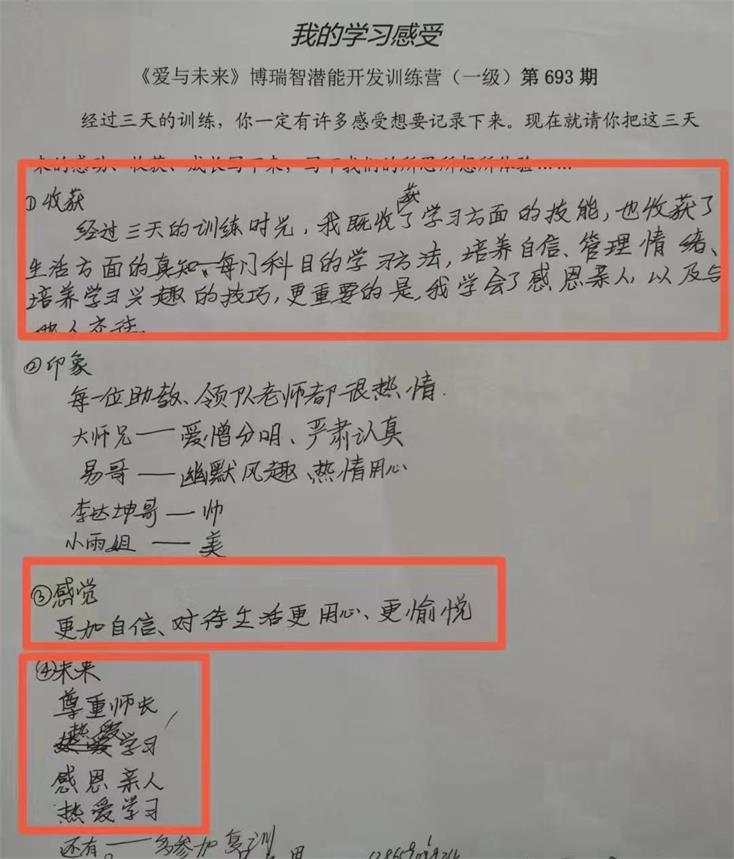 我的学习感受
《爱与未来》博瑞智潜能开发训练营（一级）第 693 期
经过三天的训练，你一定有许多感受想要记录下来。现在就请你把这三天
来的感动、收获、成长写下来，写下我们的所思所想所体验……
①收获
经过三天的训练时光，我既收获了学习方面的技能，也收获了
生活方面的真知、每门科目的学习方法，培养自信、管理情绪、
培养学习兴趣的技巧，更重要的是，我学会了感恩亲人，以及与
他人交往。
②印象
每一位助教、领队老师都很热情.
大师兄——爱憎分明、严肃认真
易哥——幽默风趣、热情用心
李达坤哥——帅
小雨姐——美
③感觉
更加自信、对待生活更用心、更愉悦
④未来
尊重师长，
热爱学习
感恩亲人
热爱学习
还有——多参加复训